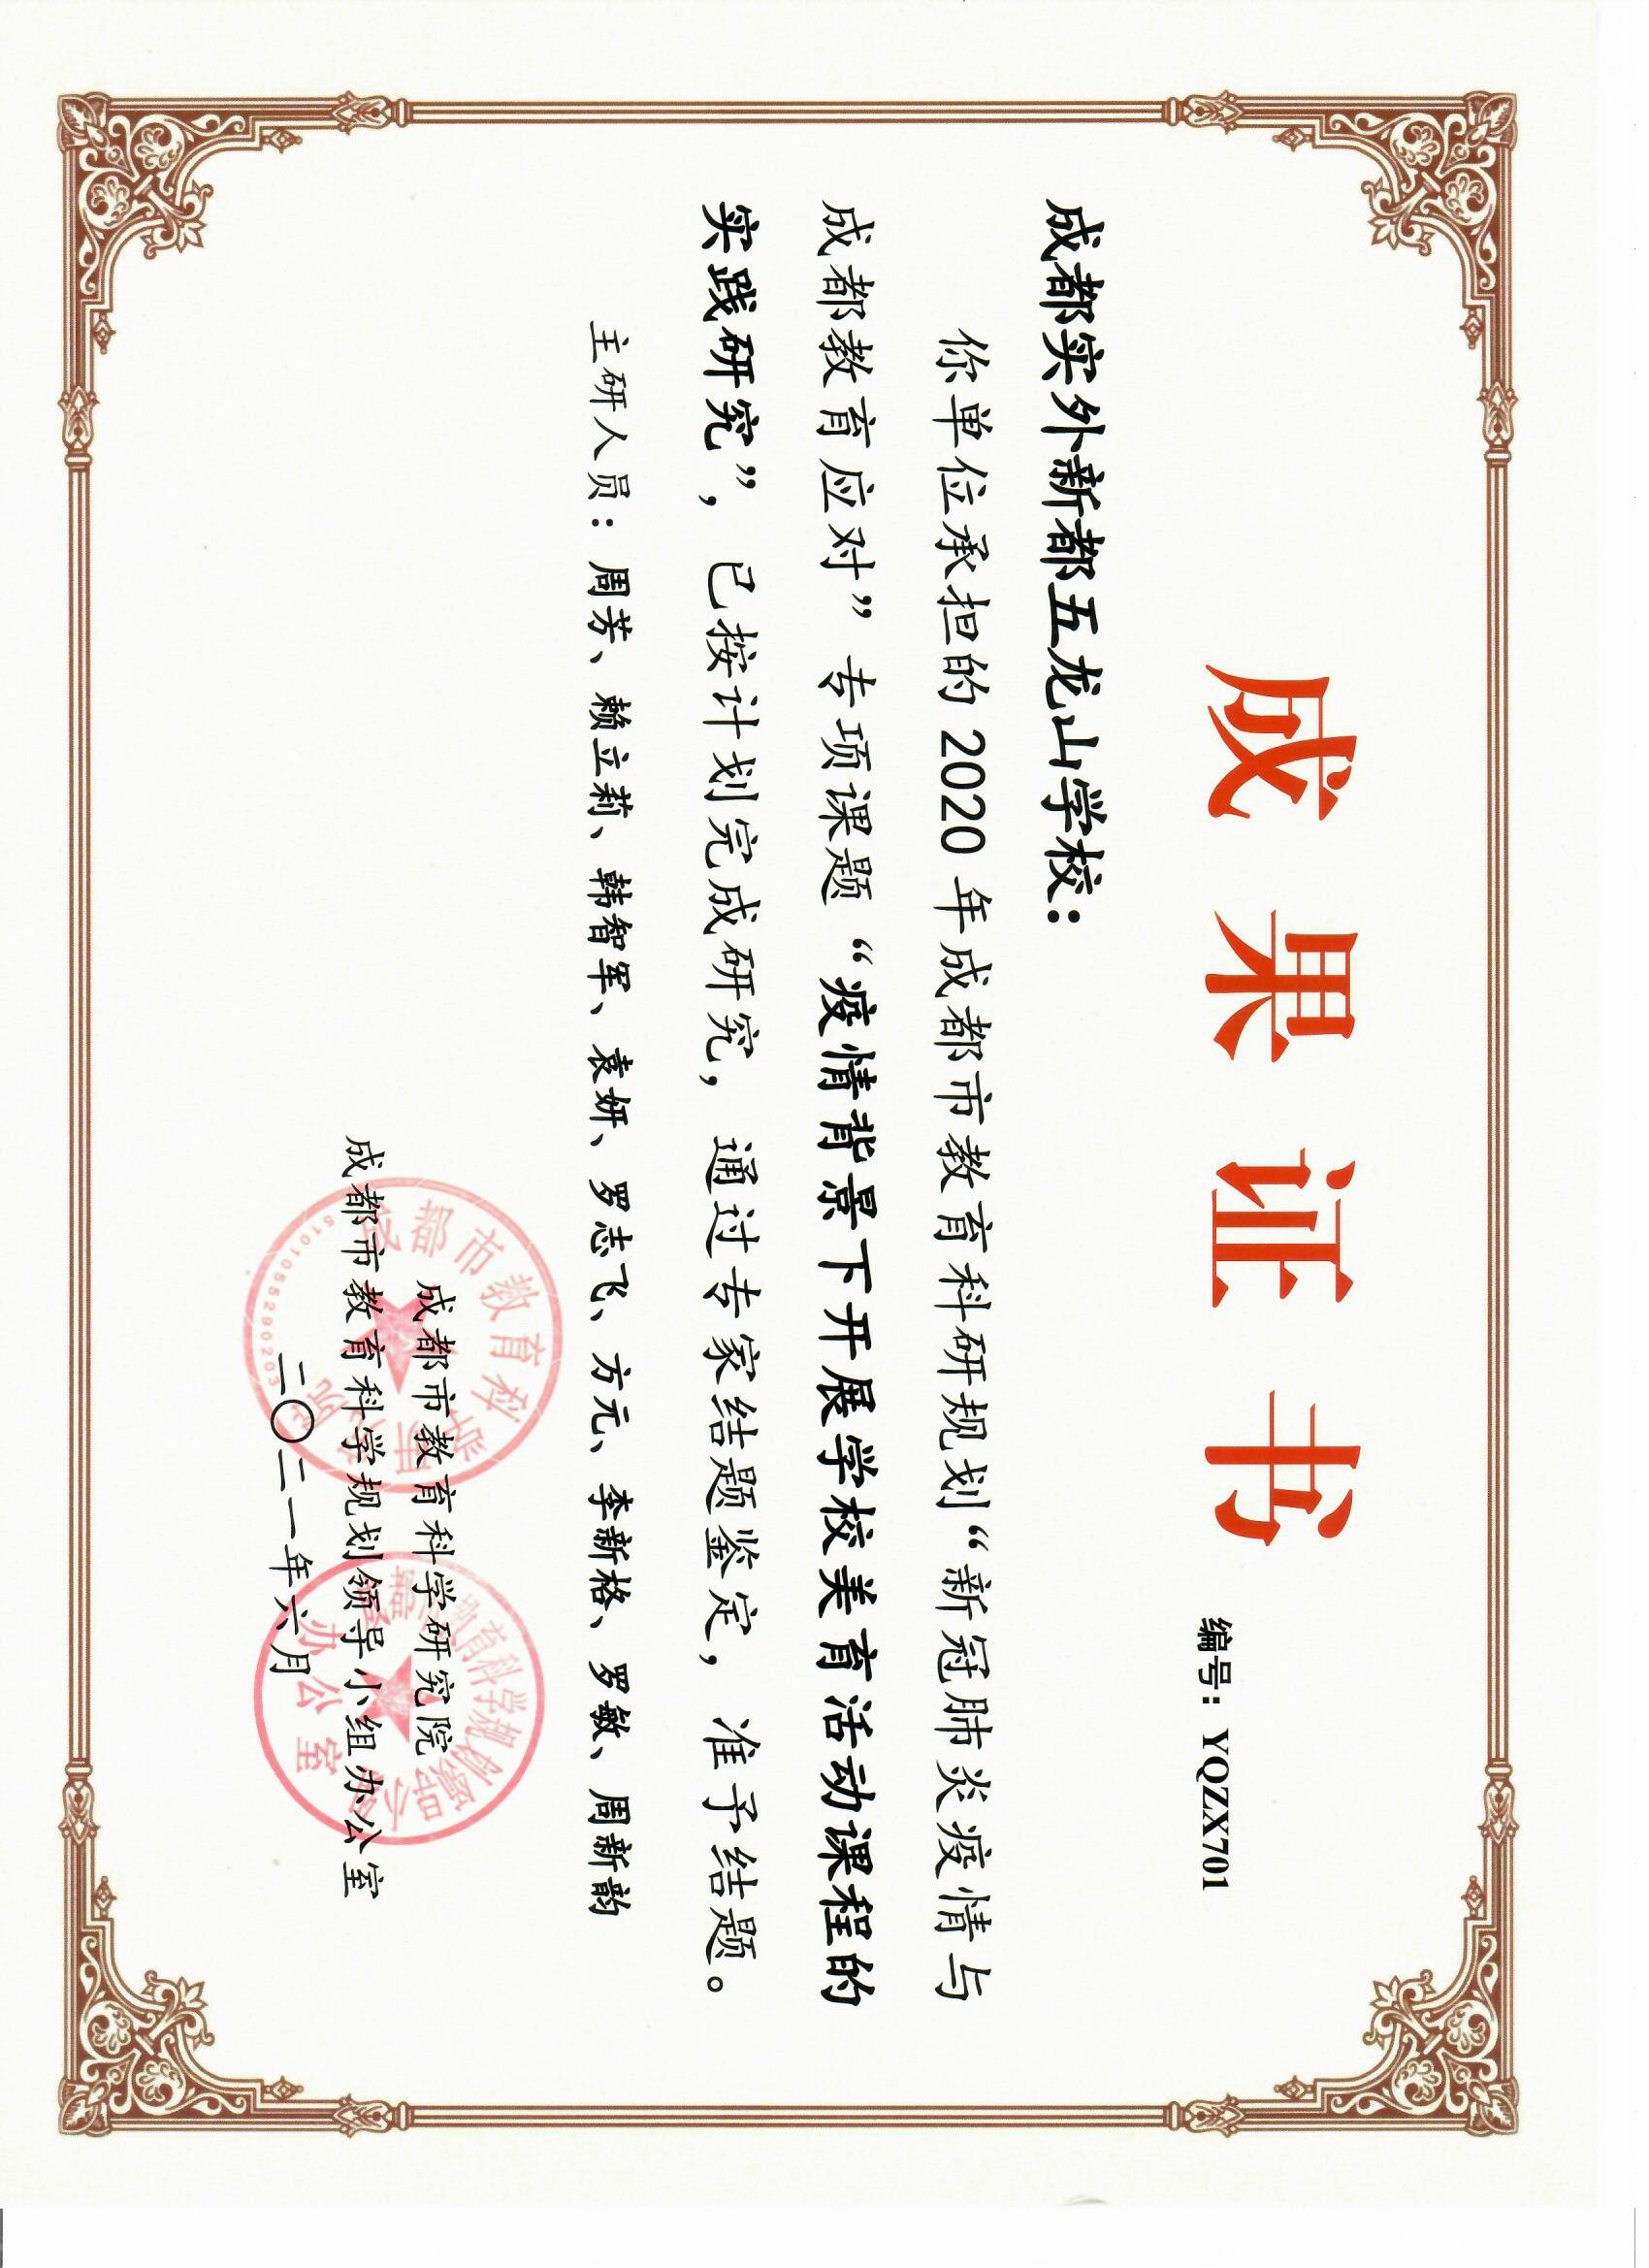 成果证书
编号：YQZX701
成都实外新都五龙山学校：
你单位承担的 2020 年成都市教育科研规划“新冠肺炎疫情与
成都教育应对”专项课题“疫情背景下开展学校美育活动课程的
实践研究”，已按计划完成研究，通过专家结题鉴定，准予结题。
主研人员：周芳、赖立莉、韩智军、袁妍、罗志飞、方元、李新格、罗敏、周新韵
成都市教育科学研究院
成都市教育科学规划领导小组办公室
二〇二一年六月
成都市教育科学研究院
5101055290203
成都市教育科学规划领导小组
办公室